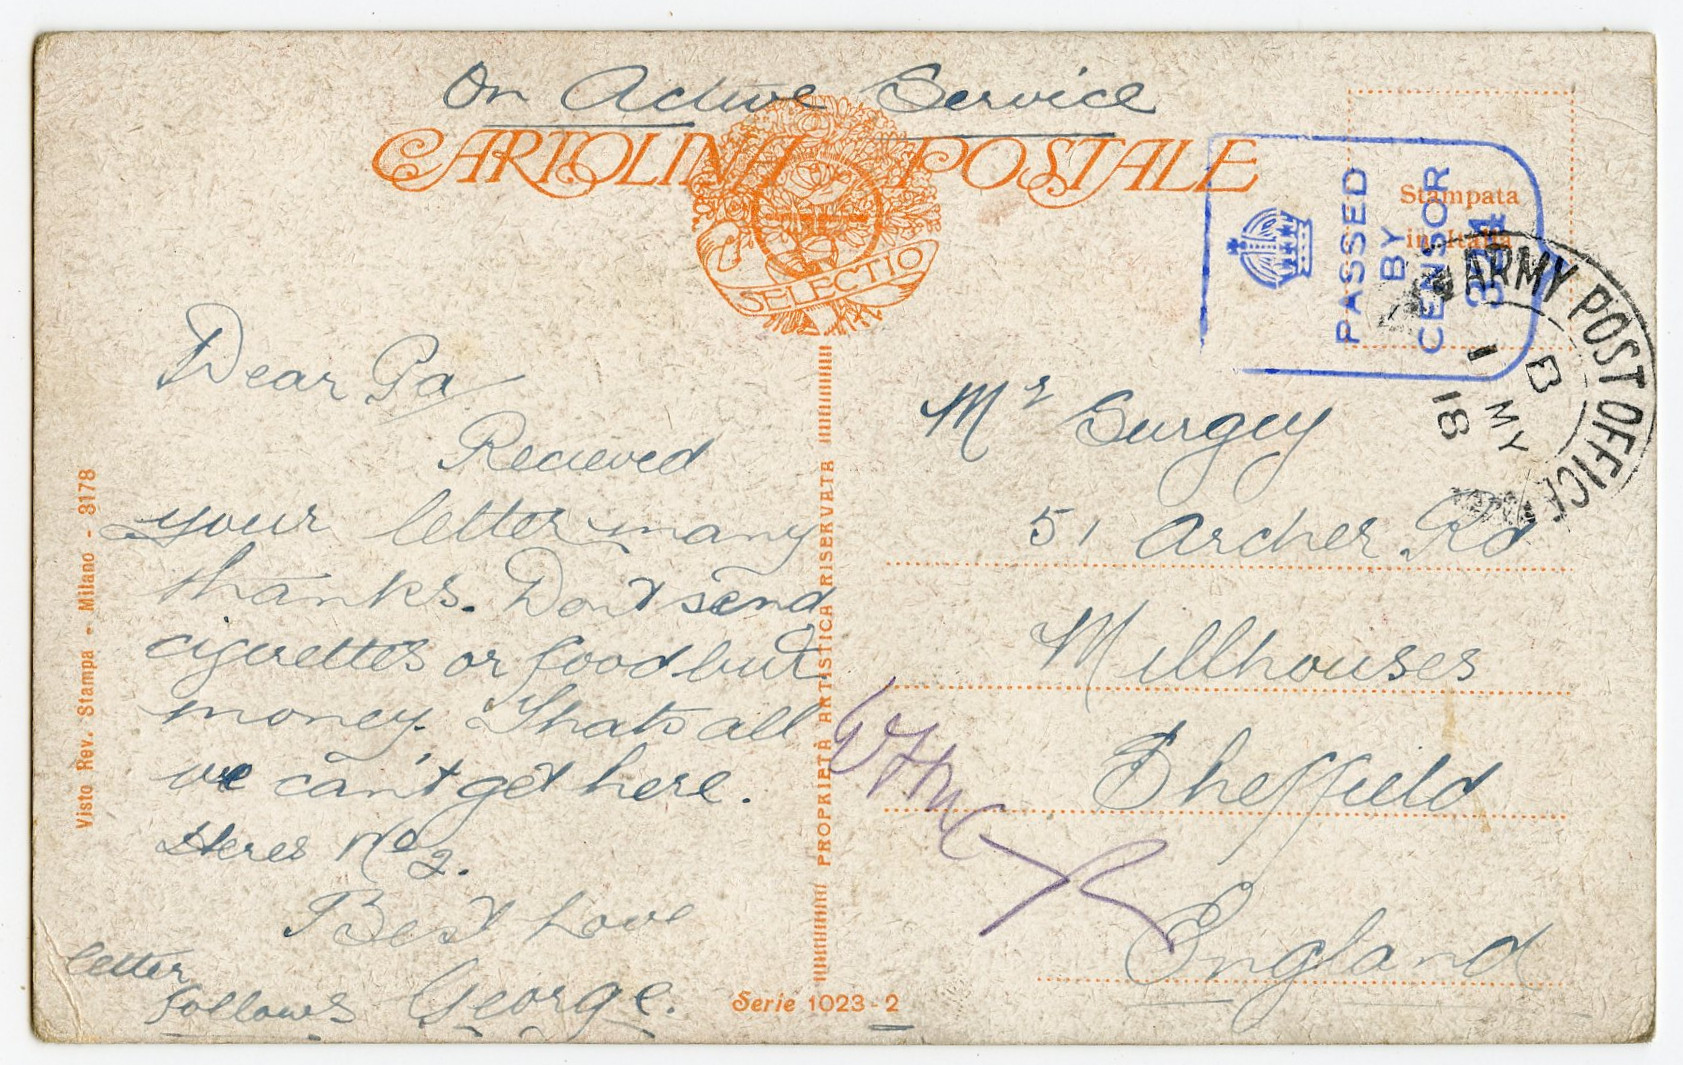 On Active Service
CARTOLINA POSTALE
SELECTIO
Stampata
in Italia
PASSED
BY
CENSOR
ARMY POST OFFICE
1
B
MY
18
Dear Pa
Recieved
your letter many
thanks. Don't send
cigerettes or food but
money. Thats all
we can't get here.
Heres No 2.
Best Love
George.
letter
follows
Mr Surgey
51 Archer Rd
Millhouses
Sheffield
England
Visto Rev. Stampa - Milano - 3178
PROPRIETÀ ARTISTICA RISERVATA
Serie 1023-2